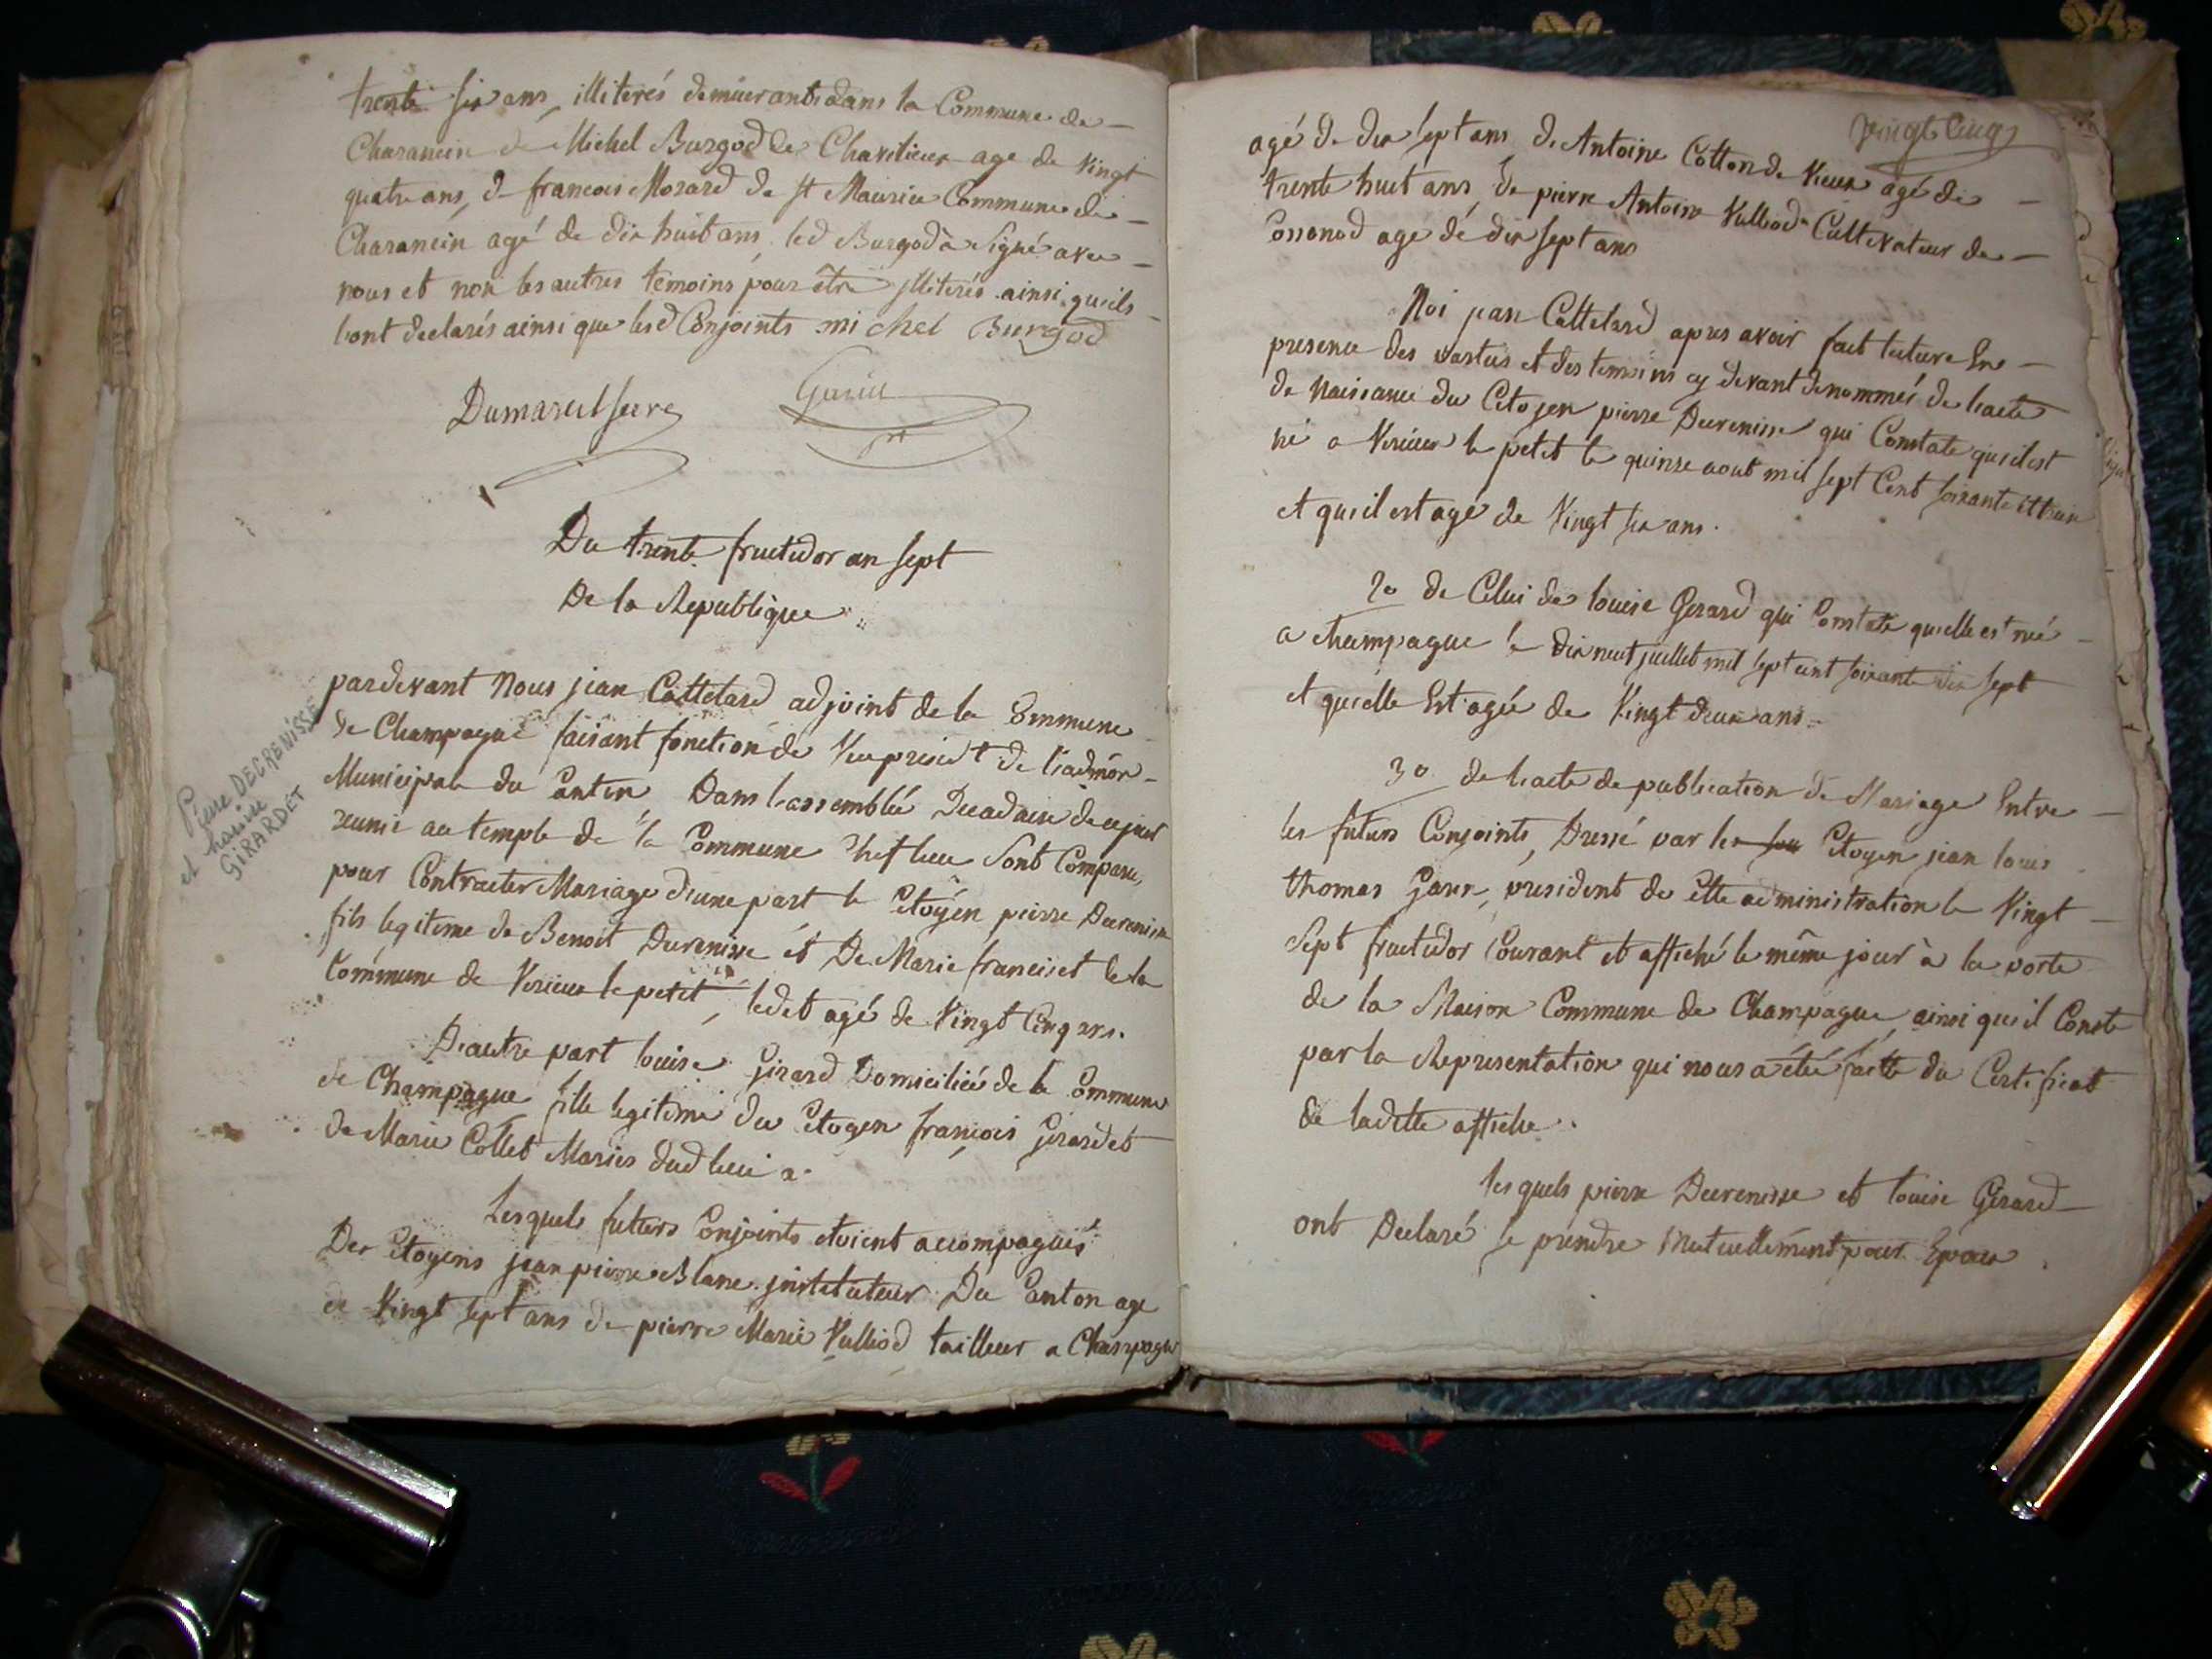 trente six ans, illiterés demeurants dans la Commune de -
Charancin de Michel Burgod de Chavilieu age de vingt
quatre ans, de francois Morard de st Maurice Commune de -
Charancin agé de dix huit ans, led Burgod a signé avec -
nous et non les autres temoins pour être illiterés ainsi qu'ils -
l'ont declarés ainsi que lesd Conjoints michel Burgod
Dumarest secre
Garin
Du trente fructidor an sept
De la Republique
pardevant Nous jean Cattelard adjoint de la Commune
de Champagne faisant fonction de Vice presidt de l'admōn -
Municipale du Canton Dans l'assemblée Decadaire de cejourd
reunie au temple de la Commune Chef lieu sont Comparu,
pour Contracter Mariage d'une part le Citoyen pierre Decrenisse
fils legitime de Benoit Decrenisse et De Marie franciset de la
Commune de Virieu le petit, ledit agé de Vingt Cinq ans.
D'autre part louise Girard Domiciliée de la Commune
de Champagne fille legitime du Citoyen françois Girard et
de Marie Collet Mariés dud lieu
Lesquels futurs Conjoints etoient accompagnés
Des Citoyens jean pierre Blanc instituteur Du Canton age
de Vingt sept ans de pierre Marie Vulliod tailleur a Champagne
Pierre DECRENISSE
et
GIRARDET
Vingt Cinq
agé de dix sept ans de Antoine Cotton de Vieux agé de -
trente huit ans, de pierre Antoine Vulliod Cultivateur de -
Ossonod age de dix sept ans
Moi jean Cattelard apres avoir fait lecture En -
presence des parties et des temoins cy devant denommés de l'acte
de Naissance du Citoyen pierre Decrenisse qui Constate qu'il est
né a Virieu le petit le quinze aout mil sept Cent soixante et treize
et qu'il est agé de Vingt six ans.
2o de Celui de louise Gerard qui Constate qu'elle est née -
a champagne le dix neuf juillet mil sept cent soixante dix sept
et qu'elle Est agée de Vingt deux ans.
3o de l'acte de publication de Mariage Entre -
les futurs Conjoints, Dressé par le Citoyen jean louis
thomas Garin, president de cette administration le Vingt -
Sept fructidor Courant et affiché le même jour à la porte
de la Maison Commune de Champagne, ainsi qu'il Conste
par la Representation qui nous a été faite du Certificat
de ladette affiche.
lesquels pierre Decrenisse et louise Gérard -
ont Declaré se prendre Mutuellement pour Epoux